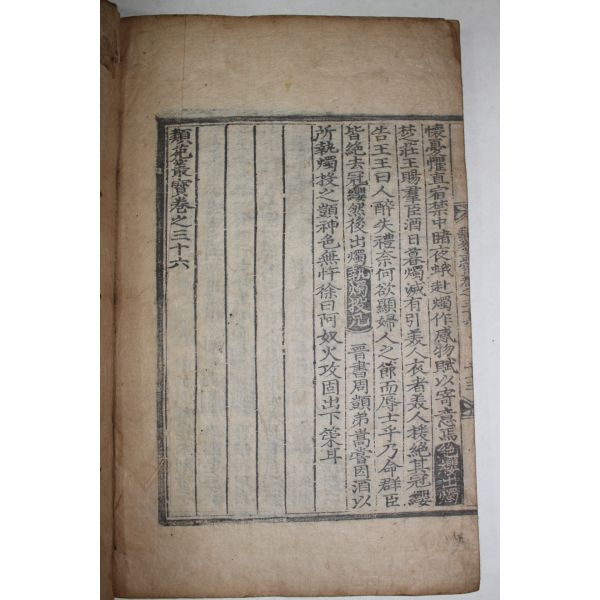 懷憂懼直宿禁中睹夜蛾赴燭作感物賦以寄意焉絶纓上燭
楚莊王賜羣臣酒日暮燭滅有引美人衣者美人援絶其冠纓
告王王曰人醉失禮奈何欲顯婦人之節而辱士乎乃命群臣
皆絶去冠纓然後出燭執燭投兄晉書周顗弟嵩嘗因酒以
所執燭投之顗神色無忤徐曰阿奴火攻固出下策耳
類苑叢寶卷之三十六